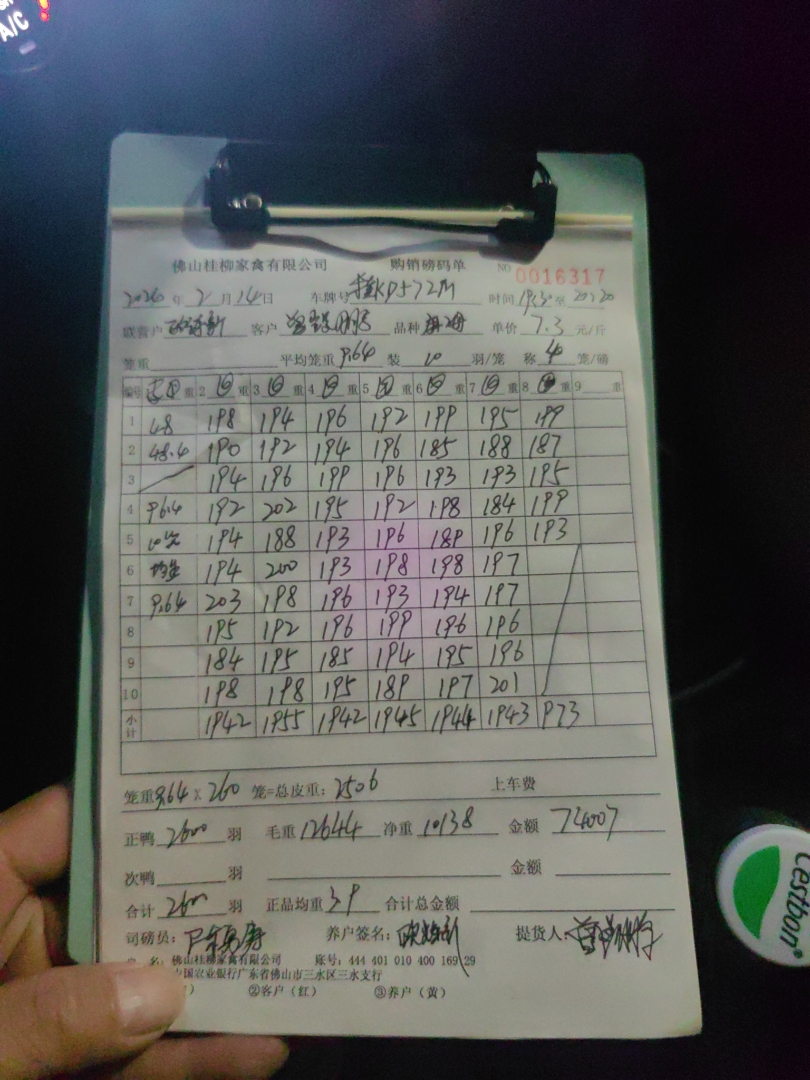 A/C
佛山桂柳家禽有限公司 购销磅码单 NO 0016317
2026年2月14日 车牌号 时间 至
联营户 客户 品种 单价 7.3 元/斤
笼重 平均笼重 9.64 装 10 羽/笼 称 4 笼/磅
编号 重 2 重 3 重 4 重 5 重 6 重 7 重 8 重 9 重
1 48 198 194 196 192 199 195 199
2 48.4 190 192 194 196 185 188 187
3 194 196 199 196 193 193 195
4 96.4 192 202 195 192 198 184 199
5 194 188 193 196 189 196 193
6 194 200 193 198 198 197
7 9.64 203 198 196 193 194 197
8 195 192 196 199 196 196
9 184 195 185 194 195 196
10 198 198 195 189 197 201
小计 1942 1955 1942 1945 1944 1943 973
笼重 9.64 X 260 笼=总皮重: 2506 上车费
正鸭 2600 羽 毛重 12644 净重 10138 金额 74007
次鸭 羽 金额
合计 2600 羽 正品均重 3.9 合计总金额
司磅员: 养户签名: 提货人:
名: 佛山桂柳家禽有限公司 账号: 444 401 010 400 169 29
国农业银行广东省佛山市三水区三水支行
②客户(红) ③养户(黄)
cestbon